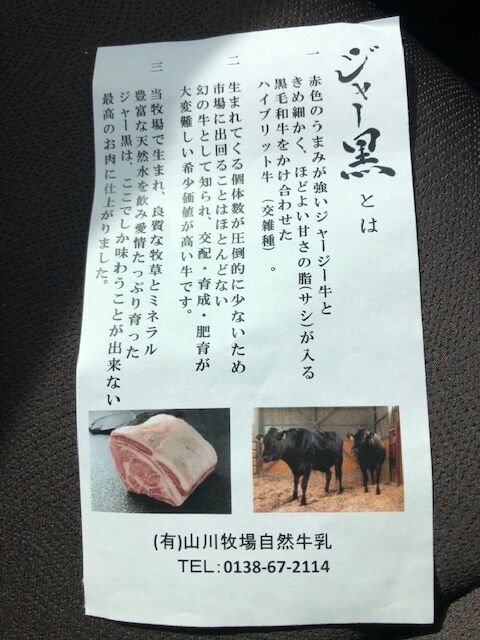 ジャー黒とは
一 赤色のうまみが強いジャージー牛と
きめ細かく、ほどよい甘さの脂(サシ)が入る
黒毛和牛をかけ合わせた
ハイブリット牛(交雑種)。
二 生まれてくる個体数が圧倒的に少ないため
市場に出回ることはほとんどない
幻の牛として知られ、交配・育成・肥育が
大変難しい希少価値が高い牛です。
三 当牧場で生まれ、良質な牧草とミネラル
豊富な天然水を飲み愛情たっぷり育った
ジャー黒は、ここでしか味わうことが出来ない
最高のお肉に仕上がりました。
(有)山川牧場自然牛乳
TEL:0138-67-2114